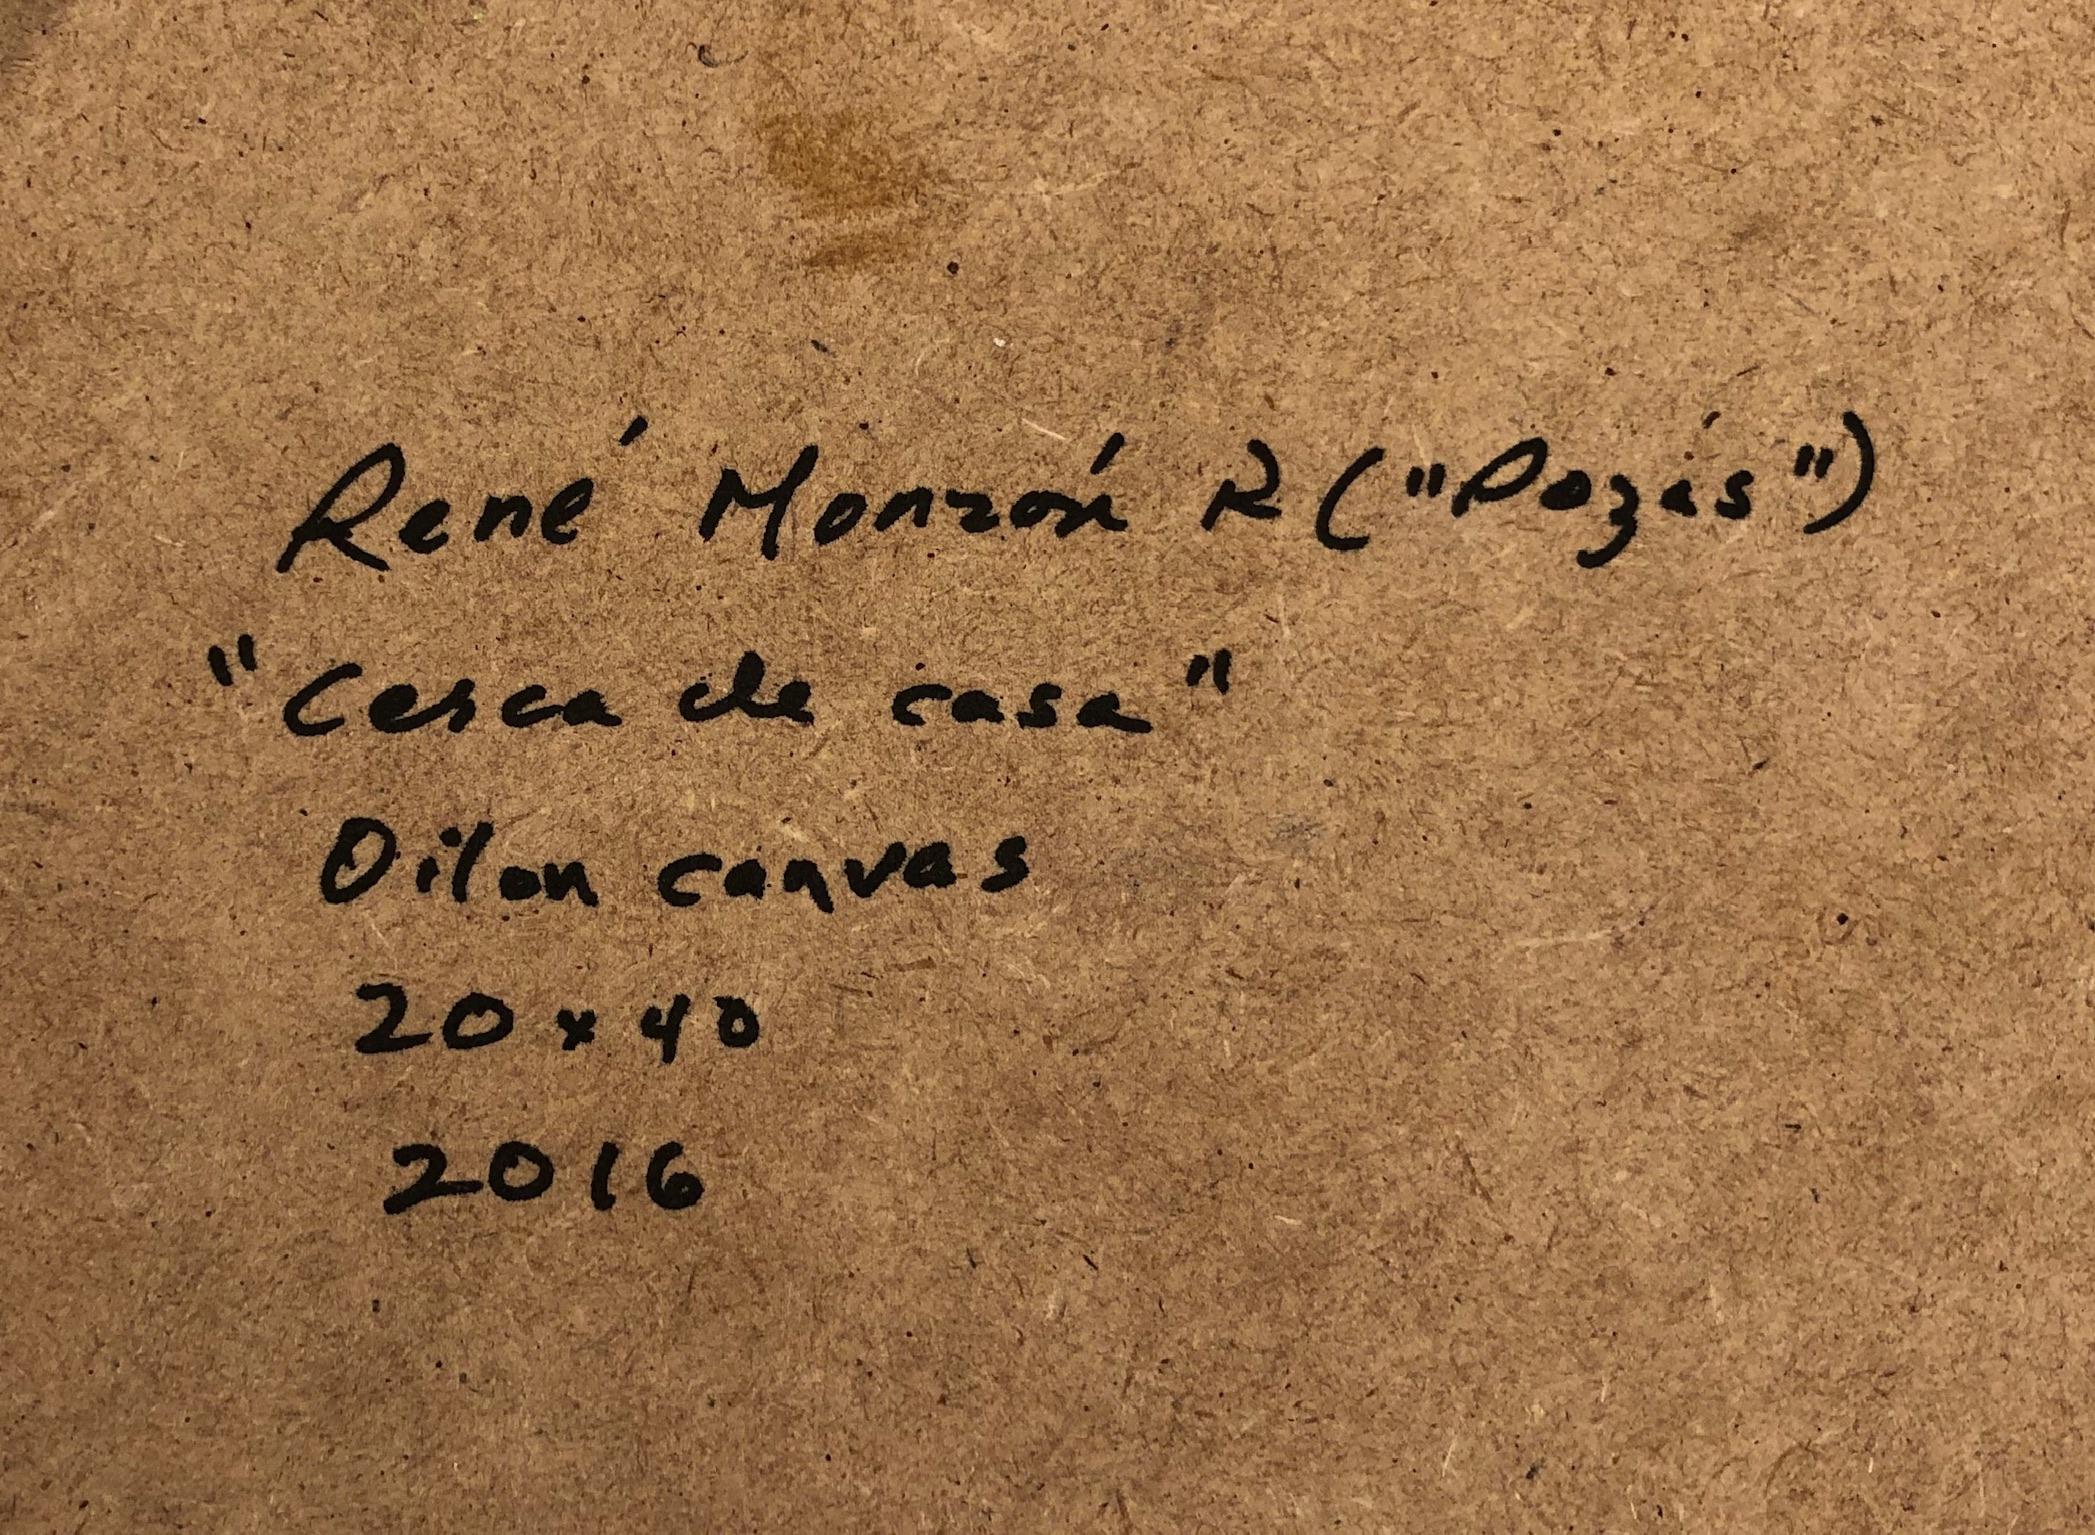 René Monzón R ("Pozas")
"Cerca de casa"
Oil on canvas
20 x 40
2016